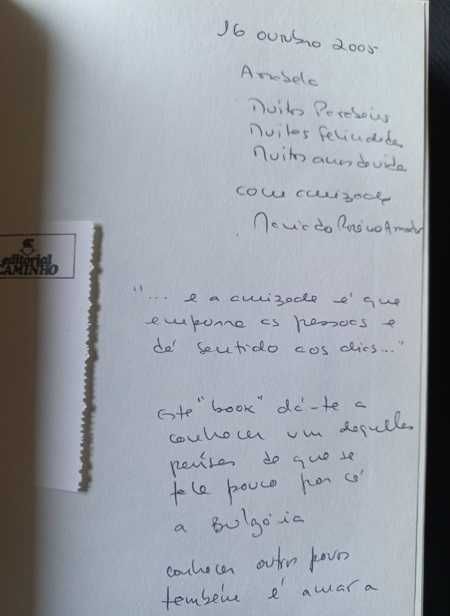 16 outubro 2005
Anabela
Muitos Parabéns
Muitas felicidades
Muitos anos de vida
com amizade
Maria do Rosário Amador
editorial
CAMINHO
"... e a amizade é que
empurra as pessoas e
dá sentido aos dias..."
Este "book" dá-te a
conhecer um daqueles
países de que se
fala pouco por cá
a Bulgária
conhecer outros povos
também é amar a